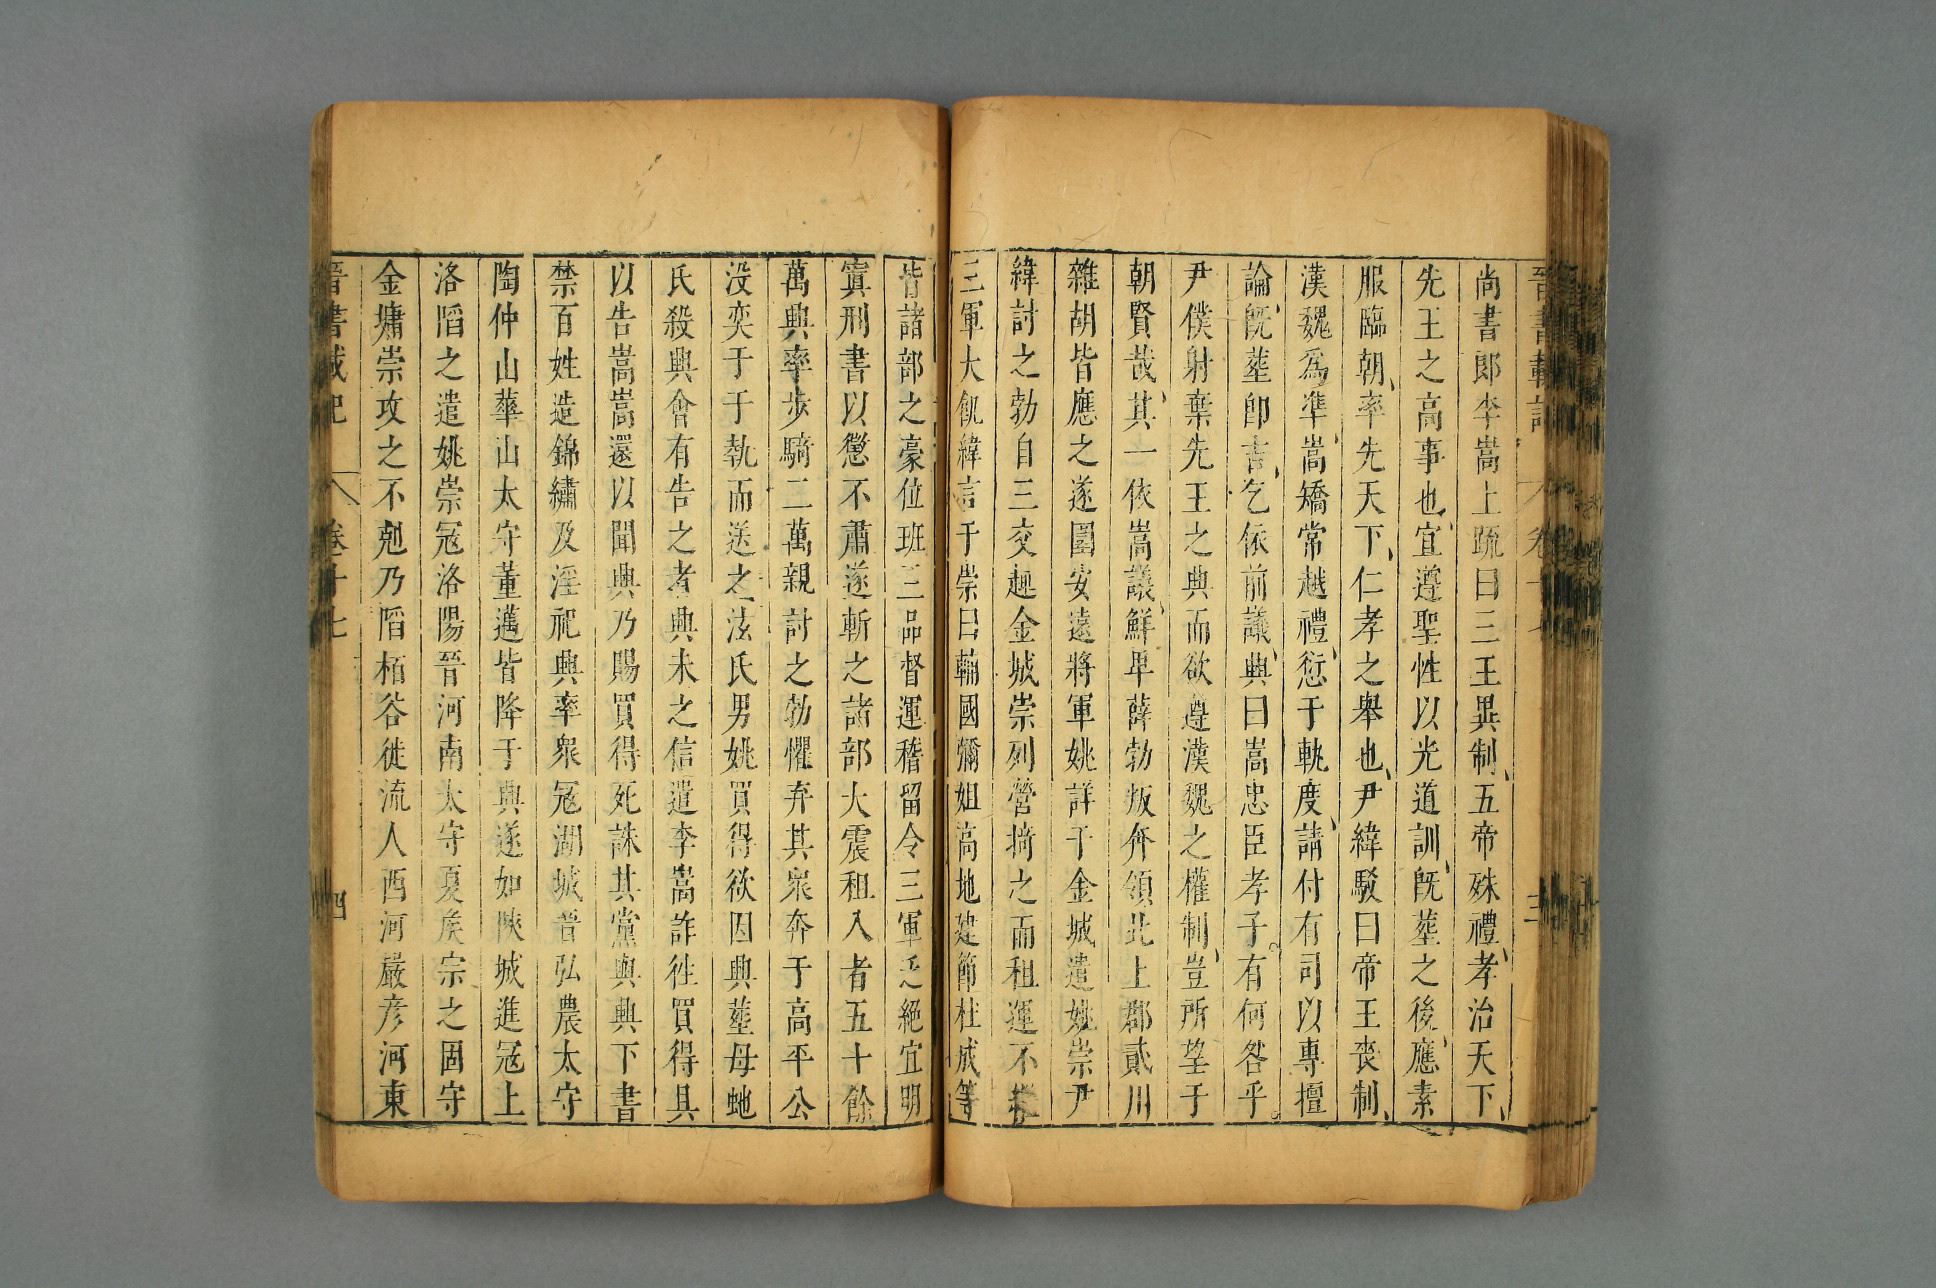 晉書載記 卷十七 三
尚書郎李嵩上疏曰三王異制五帝殊禮孝治天下
先王之高事也宜遵聖性以光道訓既葬之後應素
服臨朝率先天下仁孝之舉也尹緯駁曰帝王喪制
漢魏爲準嵩矯常越禮愆于軌度請付有司以專擅
論既葬卽吉乞依前議興曰嵩忠臣孝子有何咎乎
尹僕射棄先王之典而欲遵漢魏之權制豈所望于
朝賢哉其一依嵩議鮮卑薛勃叛奔嶺北上郡貳川
雜胡皆應之遂圍安遠將軍姚詳于金城遣姚崇尹
緯討之勃自三交趣金城崇列營掎之而租運不繼
三軍大飢緯言于崇曰輔國彌姐高地建節杜成等
皆諸部之豪位班三品督運稽留令三軍乏絕宜明
寘刑書以懲不肅遂斬之諸部大震租入者五十餘
萬興率步騎二萬親討之勃懼弃其衆奔于高平公
没奕于于執而送之泫氏男姚買得欲因興葬母虵
氏殺興會有告之者興未之信遣李嵩詐往買得具
以告嵩嵩還以聞興乃賜買得死誅其黨與興下書
禁百姓造錦繡及淫祀興率衆寇湖城晉弘農太守
陶仲山華山太守董邁皆降于興遂如陝城進寇上
洛陷之遣姚崇寇洛陽晉河南太守夏侯宗之固守
金墉崇攻之不剋乃陷栢谷徙流人西河嚴彦河東
晉書載記 卷十七 四